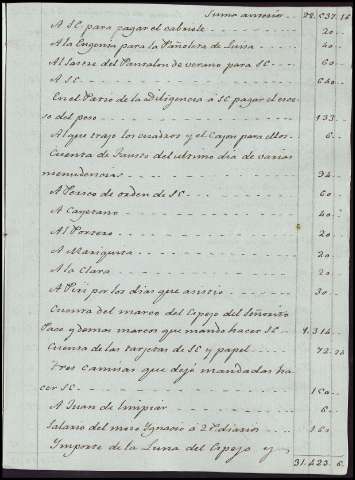 Suma anterior 22.537.16
A SE. para pagar el cabriole 20
A la Eugenia para la Pañoleta de Luisa 40
Al Sastre del Pantalon de verano para SE 60
A SE. 640
En el Patio de la Diligencia a SE pagar el esce
so del peso 133
Al que trajo los cuadros y el Cajon para ellos 6
Cuenta de Fausto del ultimo dia de varias
menudencias 94
A Perico de orden de SE 60
A Cayetano 40
Al Portero 20
A Mariquita 20
A la Clara 20
A Piri por los dias que asistio 30
Cuenta del marco del Espejo del Señorito
Paco y demas marcos que mandó hacer SE
Cuenta de las targetas de SE y papel 72
Tres camisas que dejó mandadas ha
cer SE
A Juan de limpiar 6
Salario del mozo Ygnacio á 2 P diarios
Ymporte de la Luna del Espejo y
31.423.6